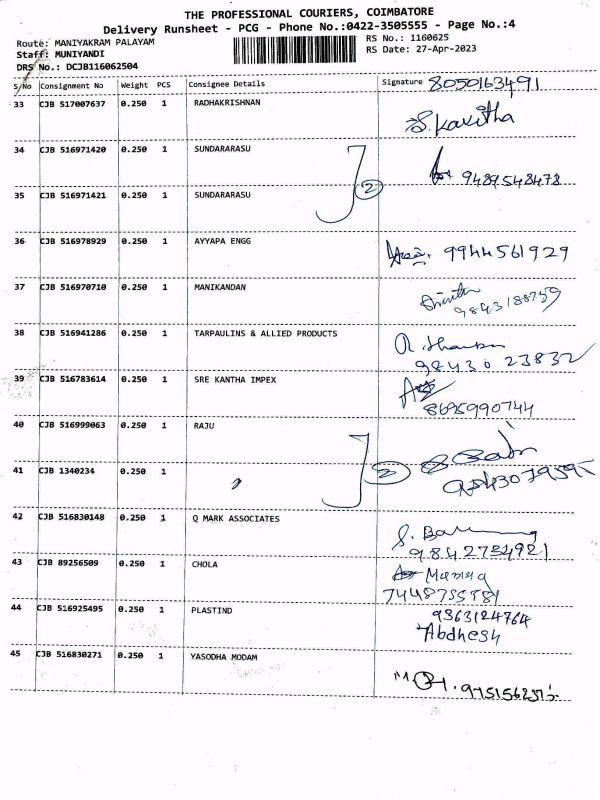 THE PROFESSIONAL COURIERS, COIMBATORE
Delivery Runsheet - PCG - Phone No.:0422-3505555 - Page No.:4
Route: MANIYAKRAM PALAYAM RS No.: 1160625
Staff: MUNIYANDI RS Date: 27-Apr-2023
DRS No.: DCJB116062504
S/No Consignment No Weight PCS Consignee Details Signature 8050163491
33 CJB 517007637 0.250 1 RADHAKRISHNAN
S. Kavitha
34 CJB 516971420 0.250 1 SUNDARARASU
2 9489548478
35 CJB 516971421 0.250 1 SUNDARARASU
36 CJB 516978929 0.250 1 AYYAPA ENGG
9944561929
37 CJB 516970710 0.250 1 MANIKANDAN
9843188759
38 CJB 516941286 0.250 1 TARPAULINS & ALLIED PRODUCTS
98430 23832
39 CJB 516783614 0.250 1 SRE KANTHA IMPEX
8695990744
40 CJB 516999063 0.250 1 RAJU
41 CJB 1340234 0.250 1 2
42 CJB 516830148 0.250 1 Q MARK ASSOCIATES
9842734921
43 CJB 89256509 0.250 1 CHOLA
44 CJB 516925495 0.250 1 PLASTIND
9363124764
Abdhesh
45 CJB 516830271 0.250 1 YASODHA MODAM